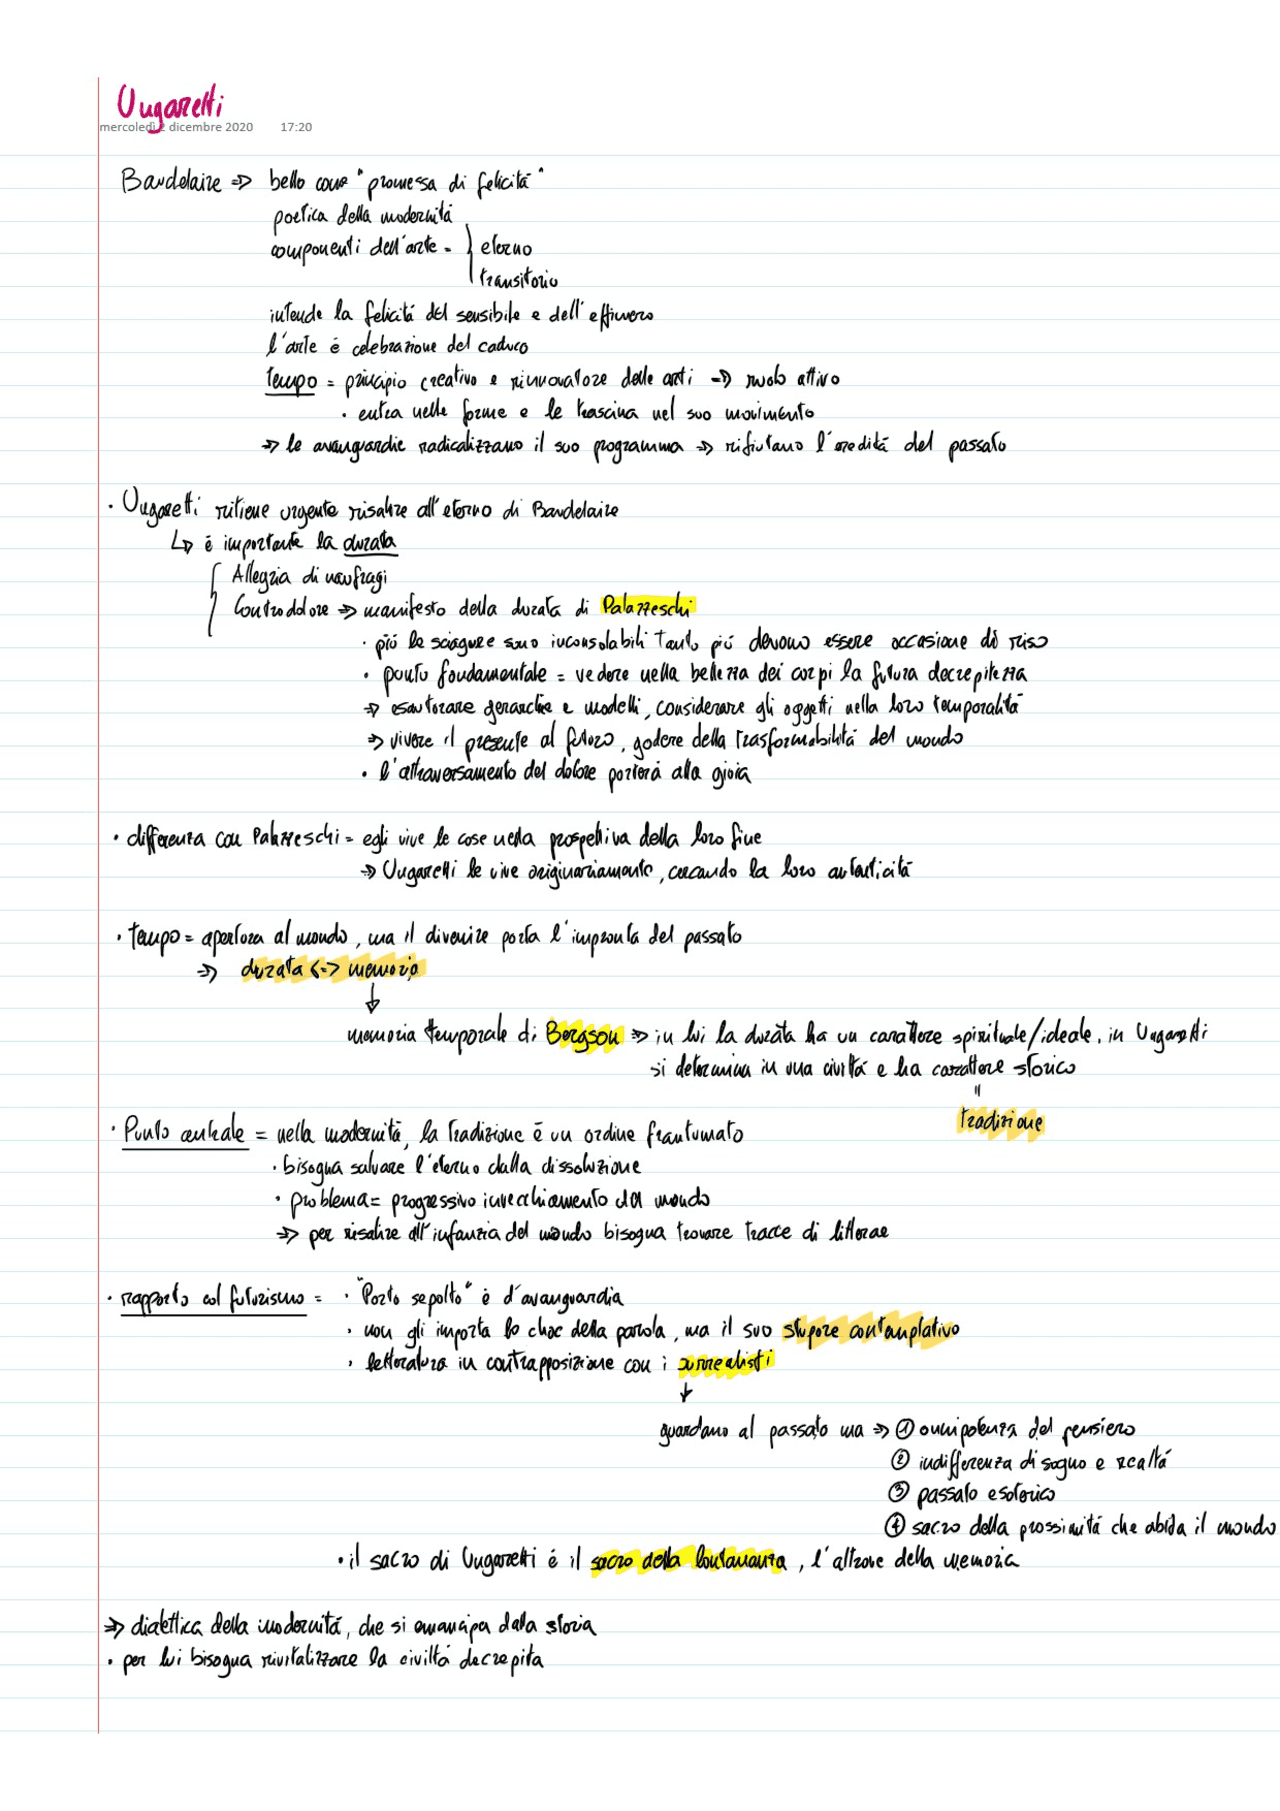 Ungaretti
mercoledì 2 dicembre 2020 17:20
Baudelaire => bello come "promessa di felicità"
poetica della modernità
componenti dell'arte = { eterno
transitorio
intende la felicità del sensibile e dell'effimero
l'arte è celebrazione del caduco
tempo = principio creativo e rinnovatore delle arti => ruolo attivo
• entra nelle forme e le trascina nel suo movimento
=> le avanguardie radicalizzano il suo programma => rifiutano l'eredità del passato
• Ungaretti ritiene urgente risalire all'eterno di Baudelaire
↳ è importante la durata
{ Allegria di naufragi
Controdolore => manifesto della durata di Palazzeschi
• più le sciagure sono inconsolabili tanto più devono essere occasione di riso
• punto fondamentale = vedere nella bellezza dei corpi la futura decrepitezza
=> esautorare gerarchie e modelli, considerare gli oggetti nella loro temporalità
=> vivere il presente al futuro, godere della trasformabilità del mondo
• l'attraversamento del dolore porterà alla gioia
• differenza con Palazzeschi = egli vive le cose nella prospettiva della loro fine
=> Ungaretti le vive originariamente, cercando la loro autenticità
• tempo = apertura al mondo, ma il divenire porta l'impronta del passato
=> durata <=> memoria
↓
memoria temporale di Bergson => in lui la durata ha un carattere spirituale/ideale, in Ungaretti
si determina in una civiltà e ha carattere storico
"
tradizione
• Punto centrale = nella modernità, la tradizione è un ordine frantumato
• bisogna salvare l'eterno dalla dissoluzione
• problema = progressivo invecchiamento del mondo
=> per risalire all'infanzia del mondo bisogna trovare tracce di litterae
• rapporto col futurismo = • "Porto sepolto" è d'avanguardia
• non gli importa lo choc della parola, ma il suo stupore contemplativo
• letteratura in contrapposizione con i surrealisti
↓
guardano al passato ma => ① onnipotenza del pensiero
② indifferenza di sogno e realtà
③ passato esoterico
④ sacro della prossimità che abita il mondo
• il sacro di Ungaretti è il sacro della lontananza, l'altrove della memoria
=> dialettica della modernità, che si emancipa dalla storia
• per lui bisogna rivitalizzare la civiltà decrepita